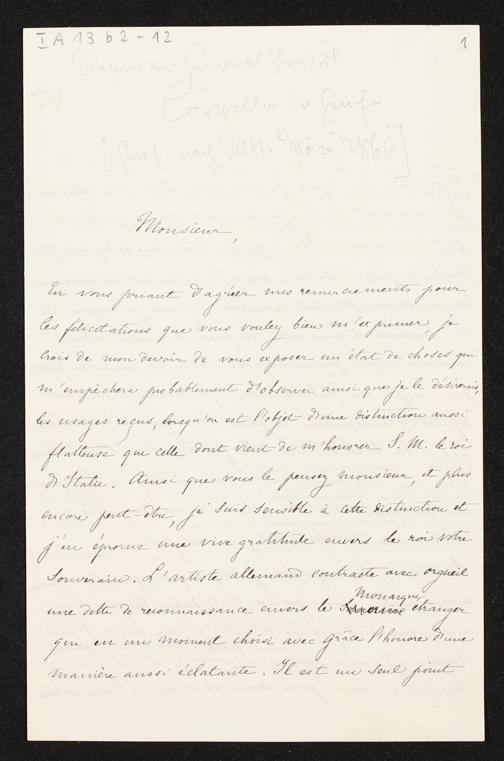 I A 13 b 2 - 12
1
Wagner an General Konsul
Corgollo in Genf
[Genf, nach Mitte März 1866]
Monsieur,
En vous priant d'agréer mes remerciements pour
les félicitations que vous voulez bien m'exprimer, je
crois de mon devoir de vous exposer un état de choses qui
m'empêchera probablement d'observer ainsi que je le désirerais,
les usages reçus, lorsqu'on est l'objet d'une distinction aussi
flatteuse que celle dont vient de m'honorer S. M. le roi
d'Italie. Ainsi que vous le pensez monsieur, et plus
encore peut-être, je suis sensible à cette distinction et
j'en éprouve une vive gratitude envers le roi votre
Souverain. L'artiste allemand contracte avec orgueil
Monarque
une dette de reconnaissance envers le étranger
qui en un moment choisi avec grâce l'honore d'une
manière aussi éclatante. Il est un seul point